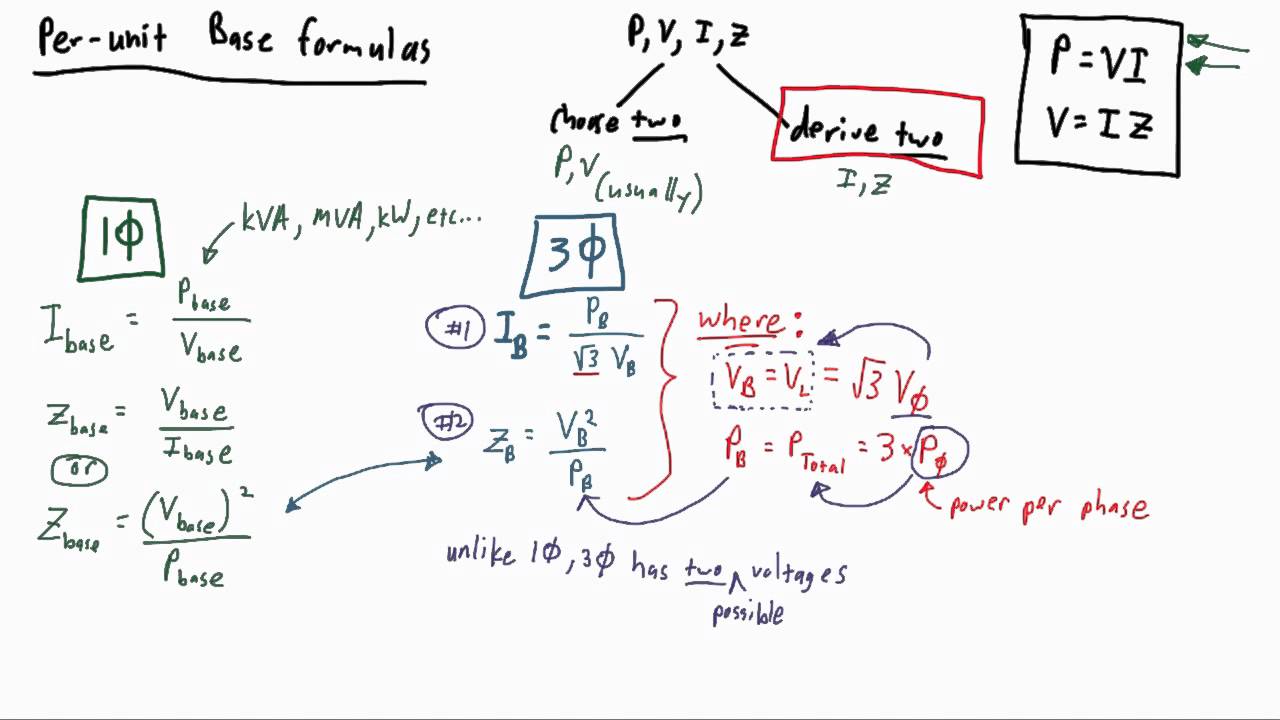 Per-unit Base formulas
P, V, I, Z
choose two
derive two
P, V (usually)
I, Z
P = VI
V = IZ
1ϕ
kVA, MVA, kW, etc...
I base = P base / V base
Z base = V base / I base
or
Z base = (V base)² / P base
3ϕ
#1 I_B = P_B / √3 V_B
#2 Z_B = V_B² / P_B
where:
V_B = V_L = √3 V_ϕ
P_B = P_Total = 3 × P_ϕ
power per phase
unlike 1ϕ, 3ϕ has two ^ voltages
possible